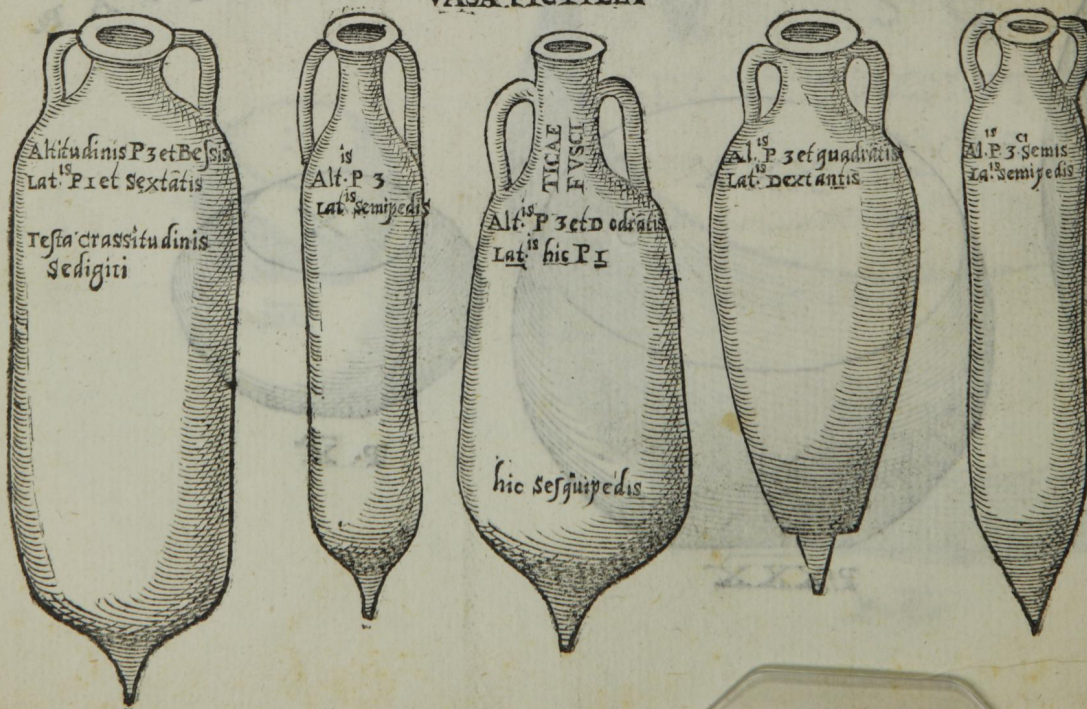 VASA FICTILIA
Altitudinis P 3 et Beſsis
Lat.is P1 et Sextātis
Teſta craſsitudinis
Seſdigiti
Alt.is P 3
Lat.is Semipedis
TICAE
FVSCI
Alt.is P 3 et Dodrātis
Lat.is hic P1
hic Seſquipedis
Al.is P 3 et quadrātis
Lat.is Dextantis
Al.is P. 3. Semis
La.is Semipedis
P. X
P. XX